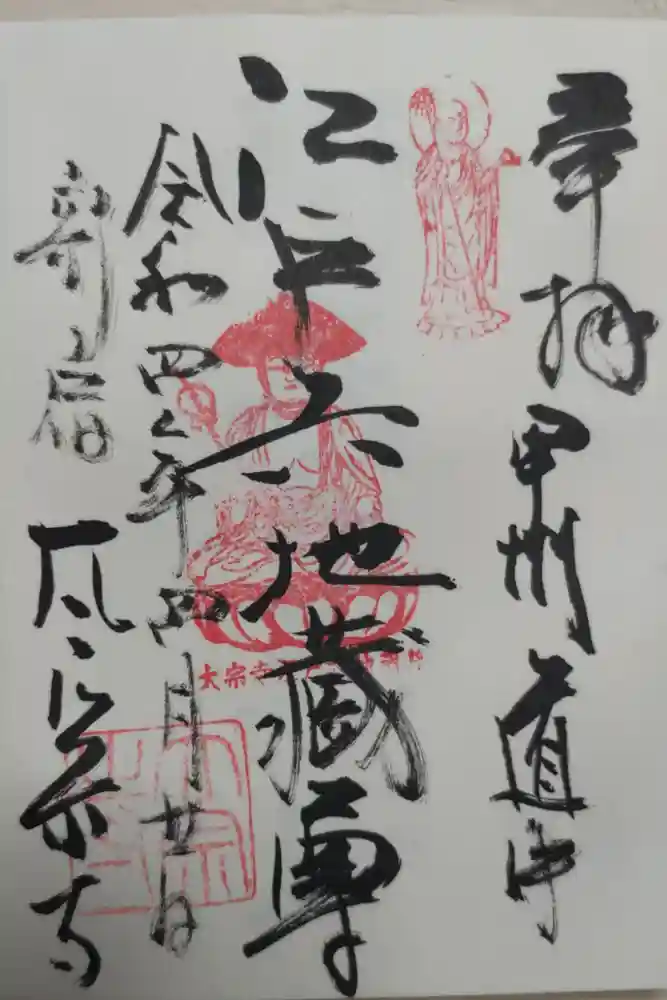 奉拝 甲州道中
江戸六地蔵尊
令和四年四月廿日
新宿
宗寺
太宗寺